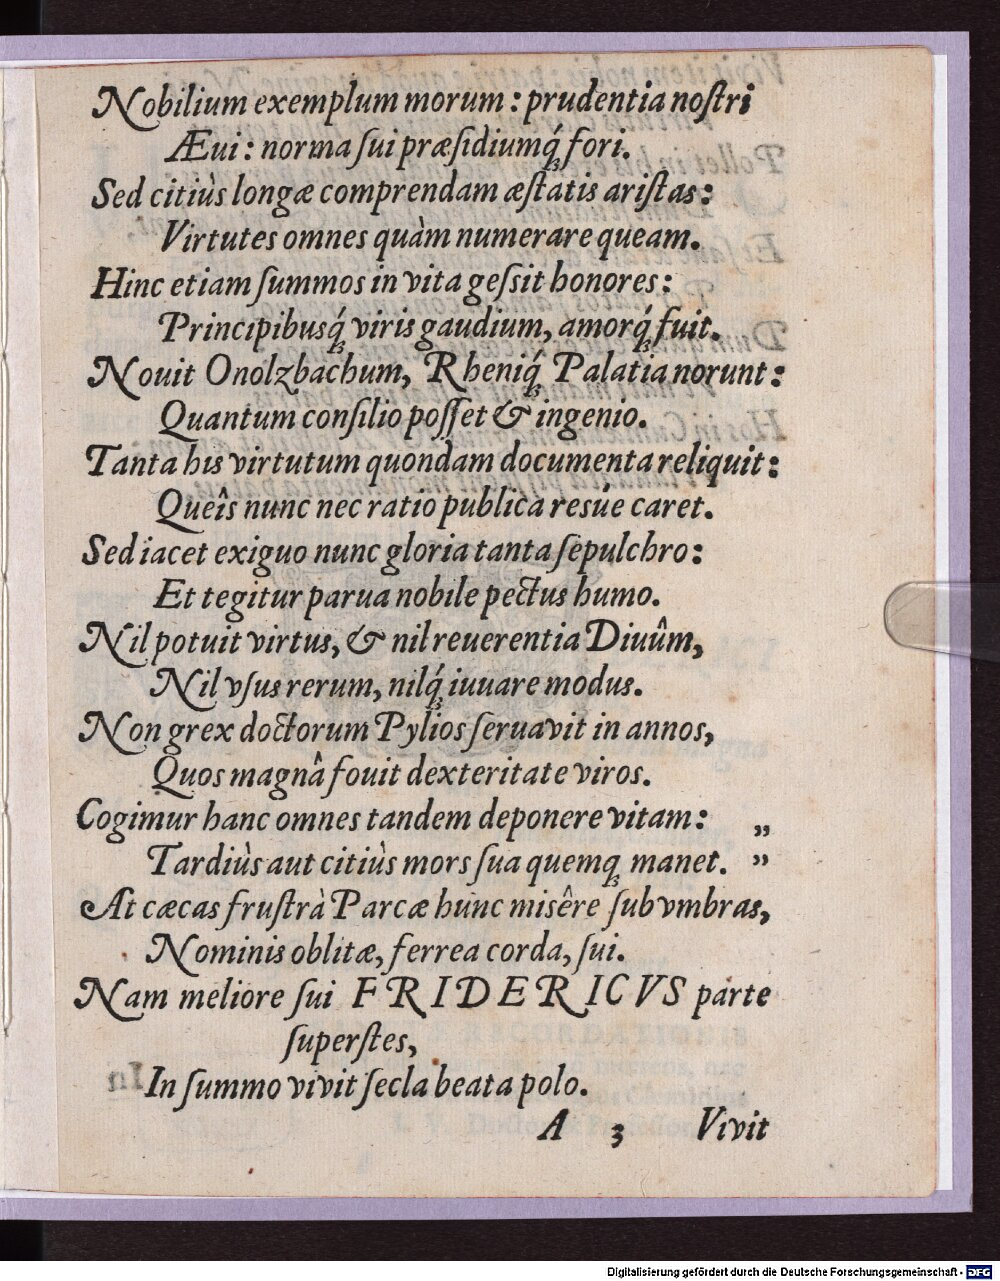 Nobilium exemplum morum : prudentia noſtri
Æui : norma ſui præſidiumq́ꝫ fori.
Sed citiùs longæ comprendam æſtatis ariſtas :
Virtutes omnes quàm numerare queam.
Hinc etiam ſummos in vita geſsit honores :
Principibusq́ꝫ viris gaudium, amorq́ꝫ fuit.
Nouit Onolzbachum, Rheniq́ꝫ Palatia norunt :
Quantum conſilio poſſet & ingenio.
Tanta his virtutum quondam documenta reliquit :
Queîs nunc nec ratio publica resúe caret.
Sed iacet exiguo nunc gloria tanta ſepulchro :
Et tegitur parua nobile pectus humo.
Nil potuit virtus, & nil reuerentia Diuûm,
Nil vſus rerum, nilq́ꝫ iuuare modus.
Non grex doctorum Pylios ſeruavit in annos,
Quos magnâ fouit dexteritate viros.
Cogimur hanc omnes tandem deponere vitam : „
Tardiùs aut citiùs mors ſua quemqꝫ manet. ”
At cæcas fruſtrà Parcæ hunc misêre ſub vmbras,
Nominis oblitæ, ferrea corda, ſui.
Nam meliore ſui FRIDERICVS parte
ſuperſtes,
In ſummo vivit ſecla beata polo.
A 3 Vivit
Digitalisierung gefördert durch die Deutsche Forschungsgemeinschaft - DFG